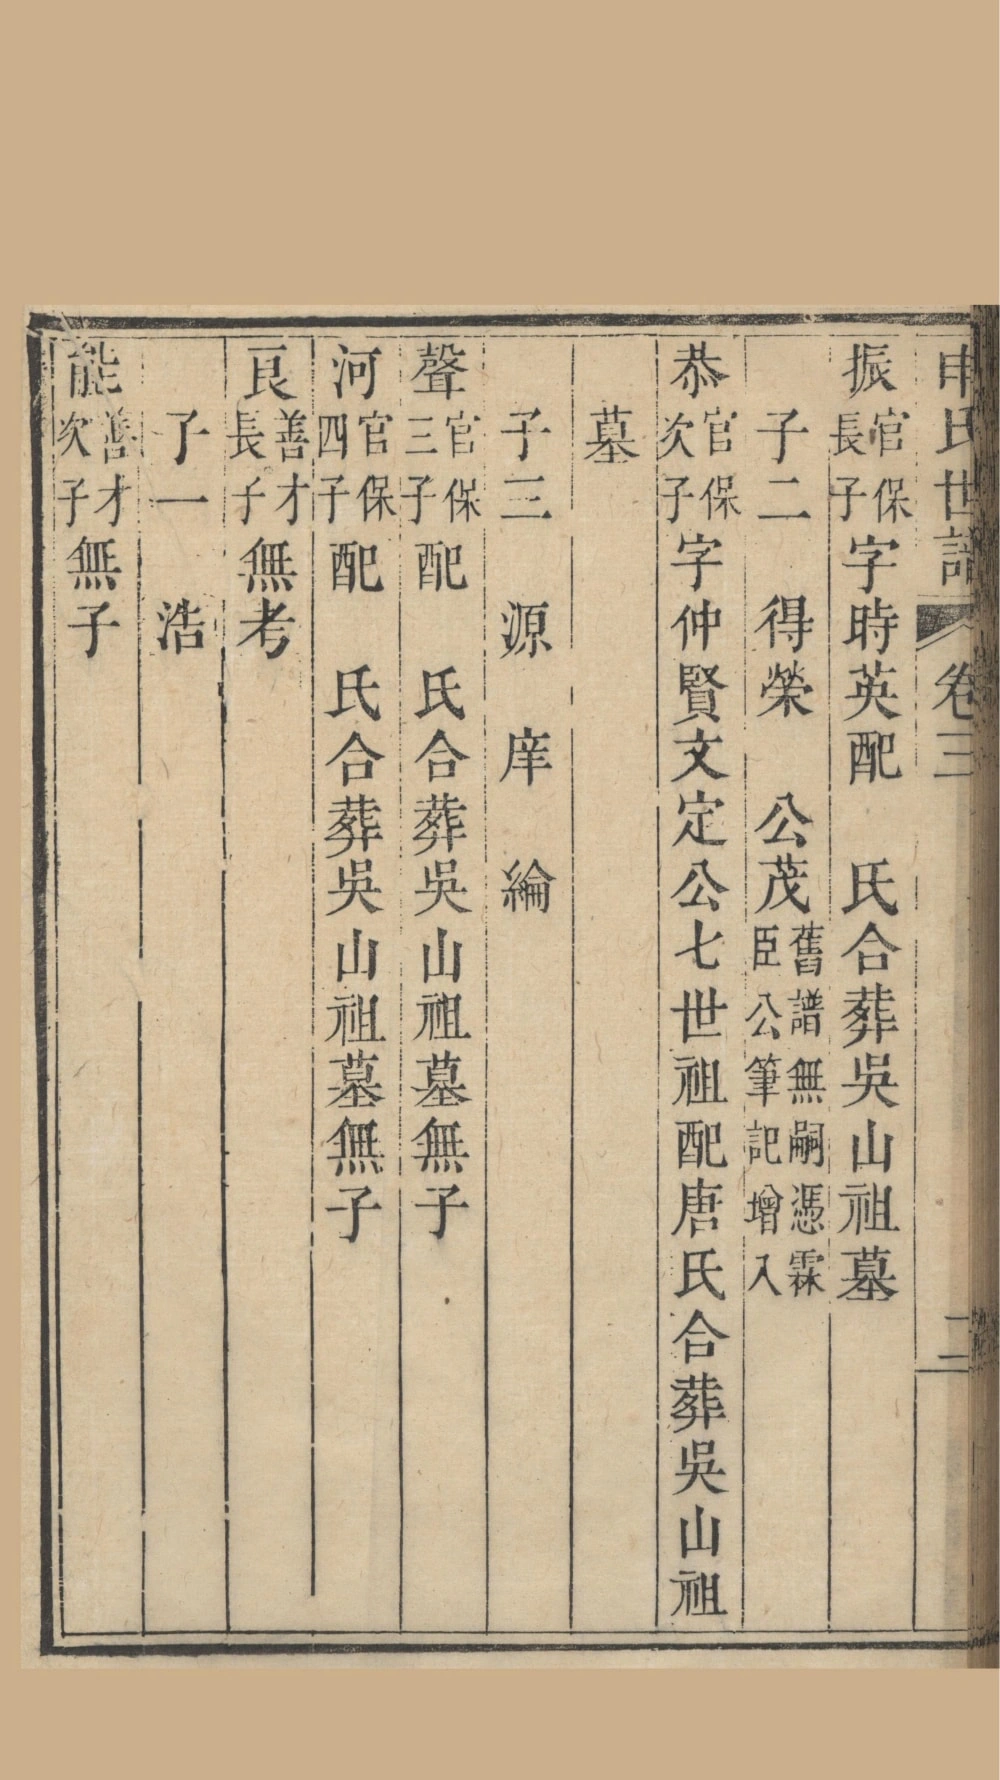 申氏世譜 卷三 二
振 官保長子 字時英配 氏合葬吳山祖墓
子二 得榮 公茂 舊譜無嗣憑霖臣公筆記增入
恭 官保次子 字仲賢文定公七世祖配唐氏合葬吳山祖
墓
子三 源 庠 綸
聲 官保三子 配 氏合葬吳山祖墓無子
河 官保四子 配 氏合葬吳山祖墓無子
良 善才長子 無考
子一 浩
能 善才次子 無子